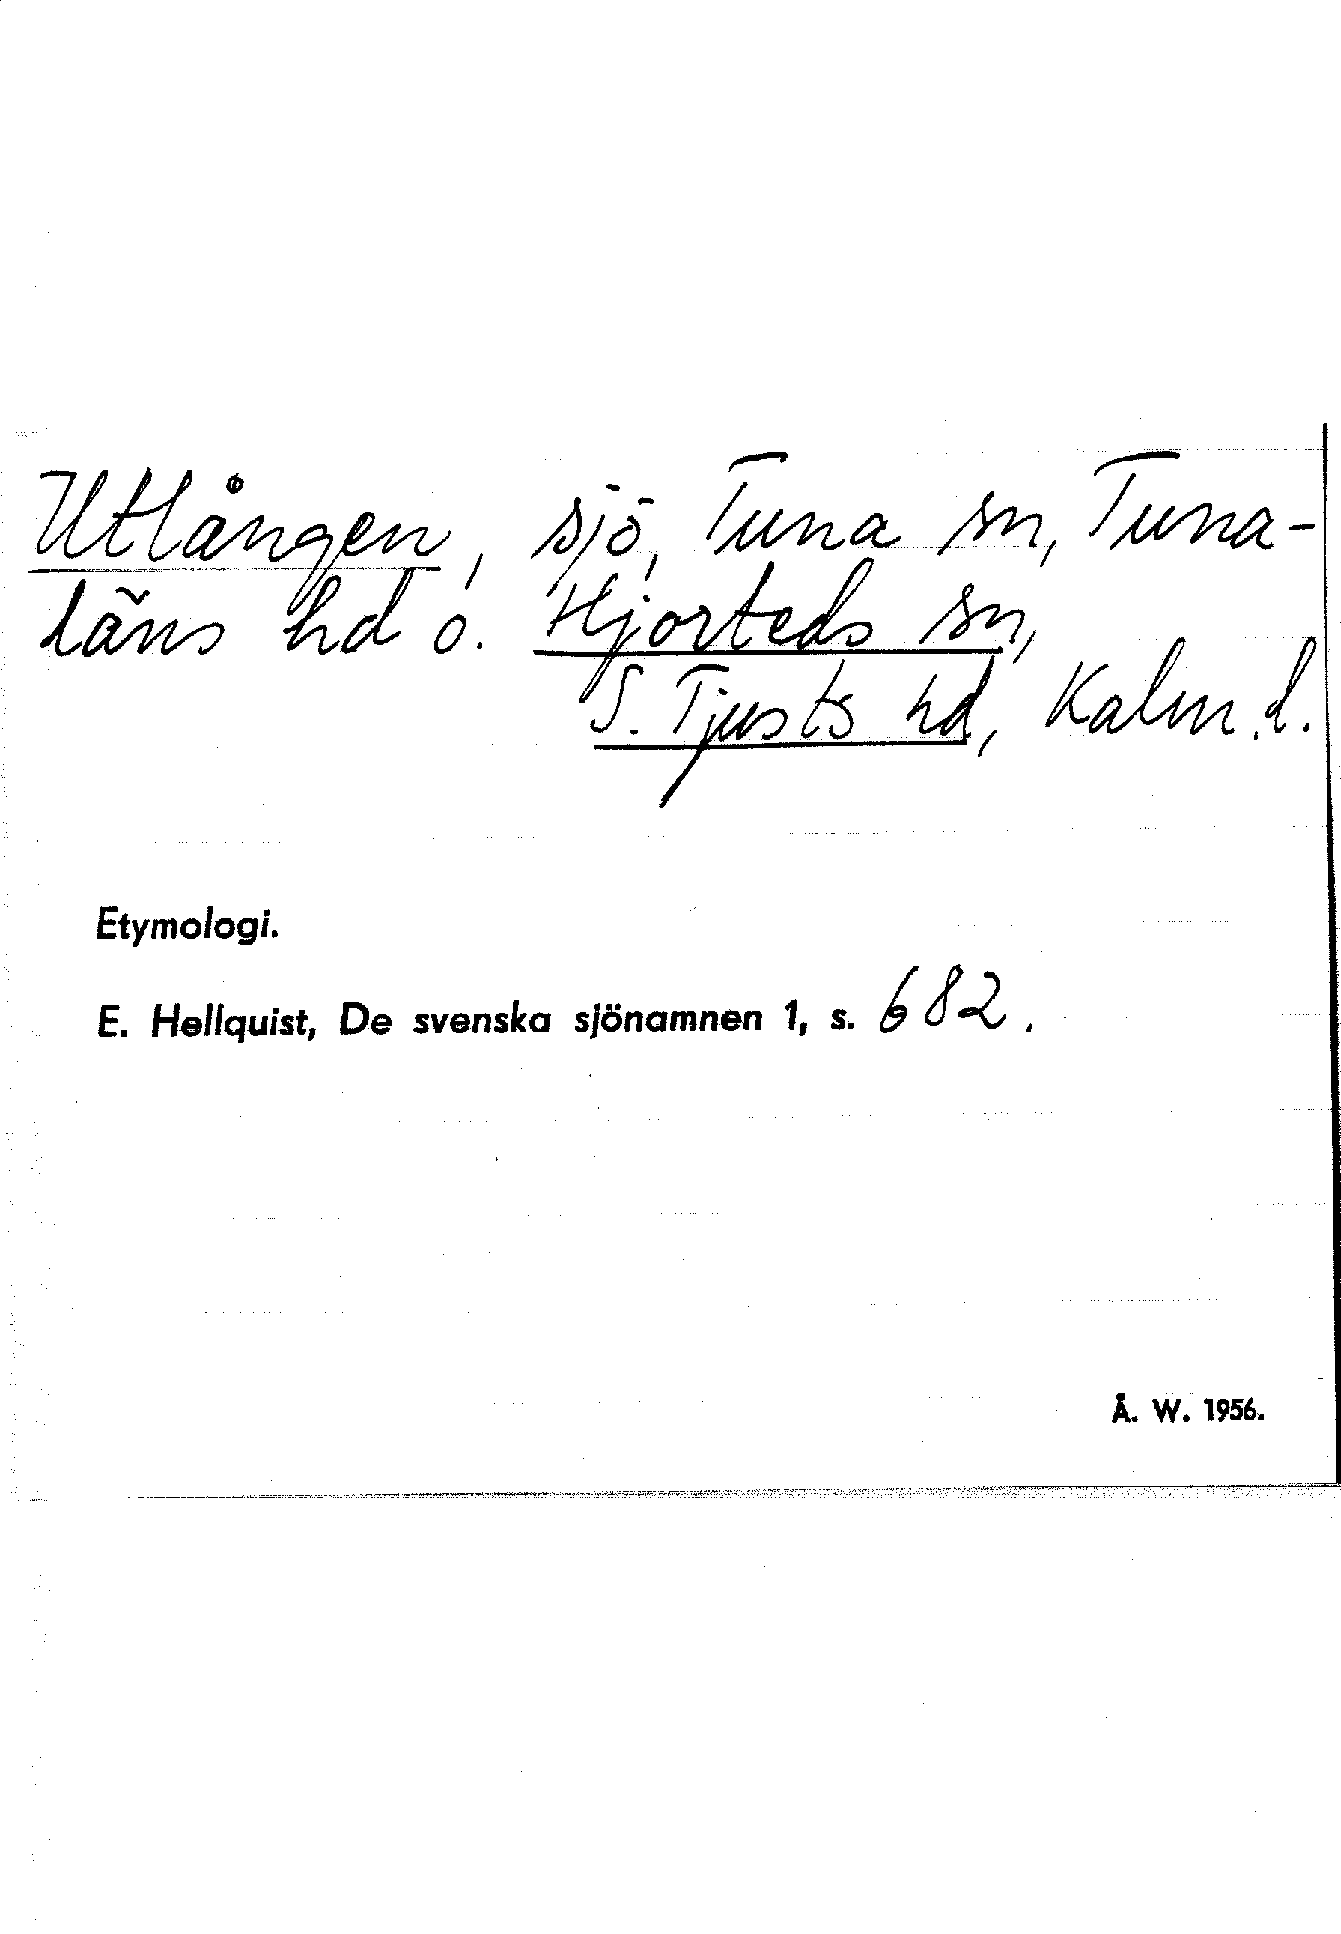 Utlången, sjö, Tuna sn, Tuna-
läns hd o. Hjorteds sn,
S. Tjusts hd, Kalm. l.
Etymologi.
E. Hellquist, De svenska sjönamnen 1, s. 682.
Å. W. 1956.